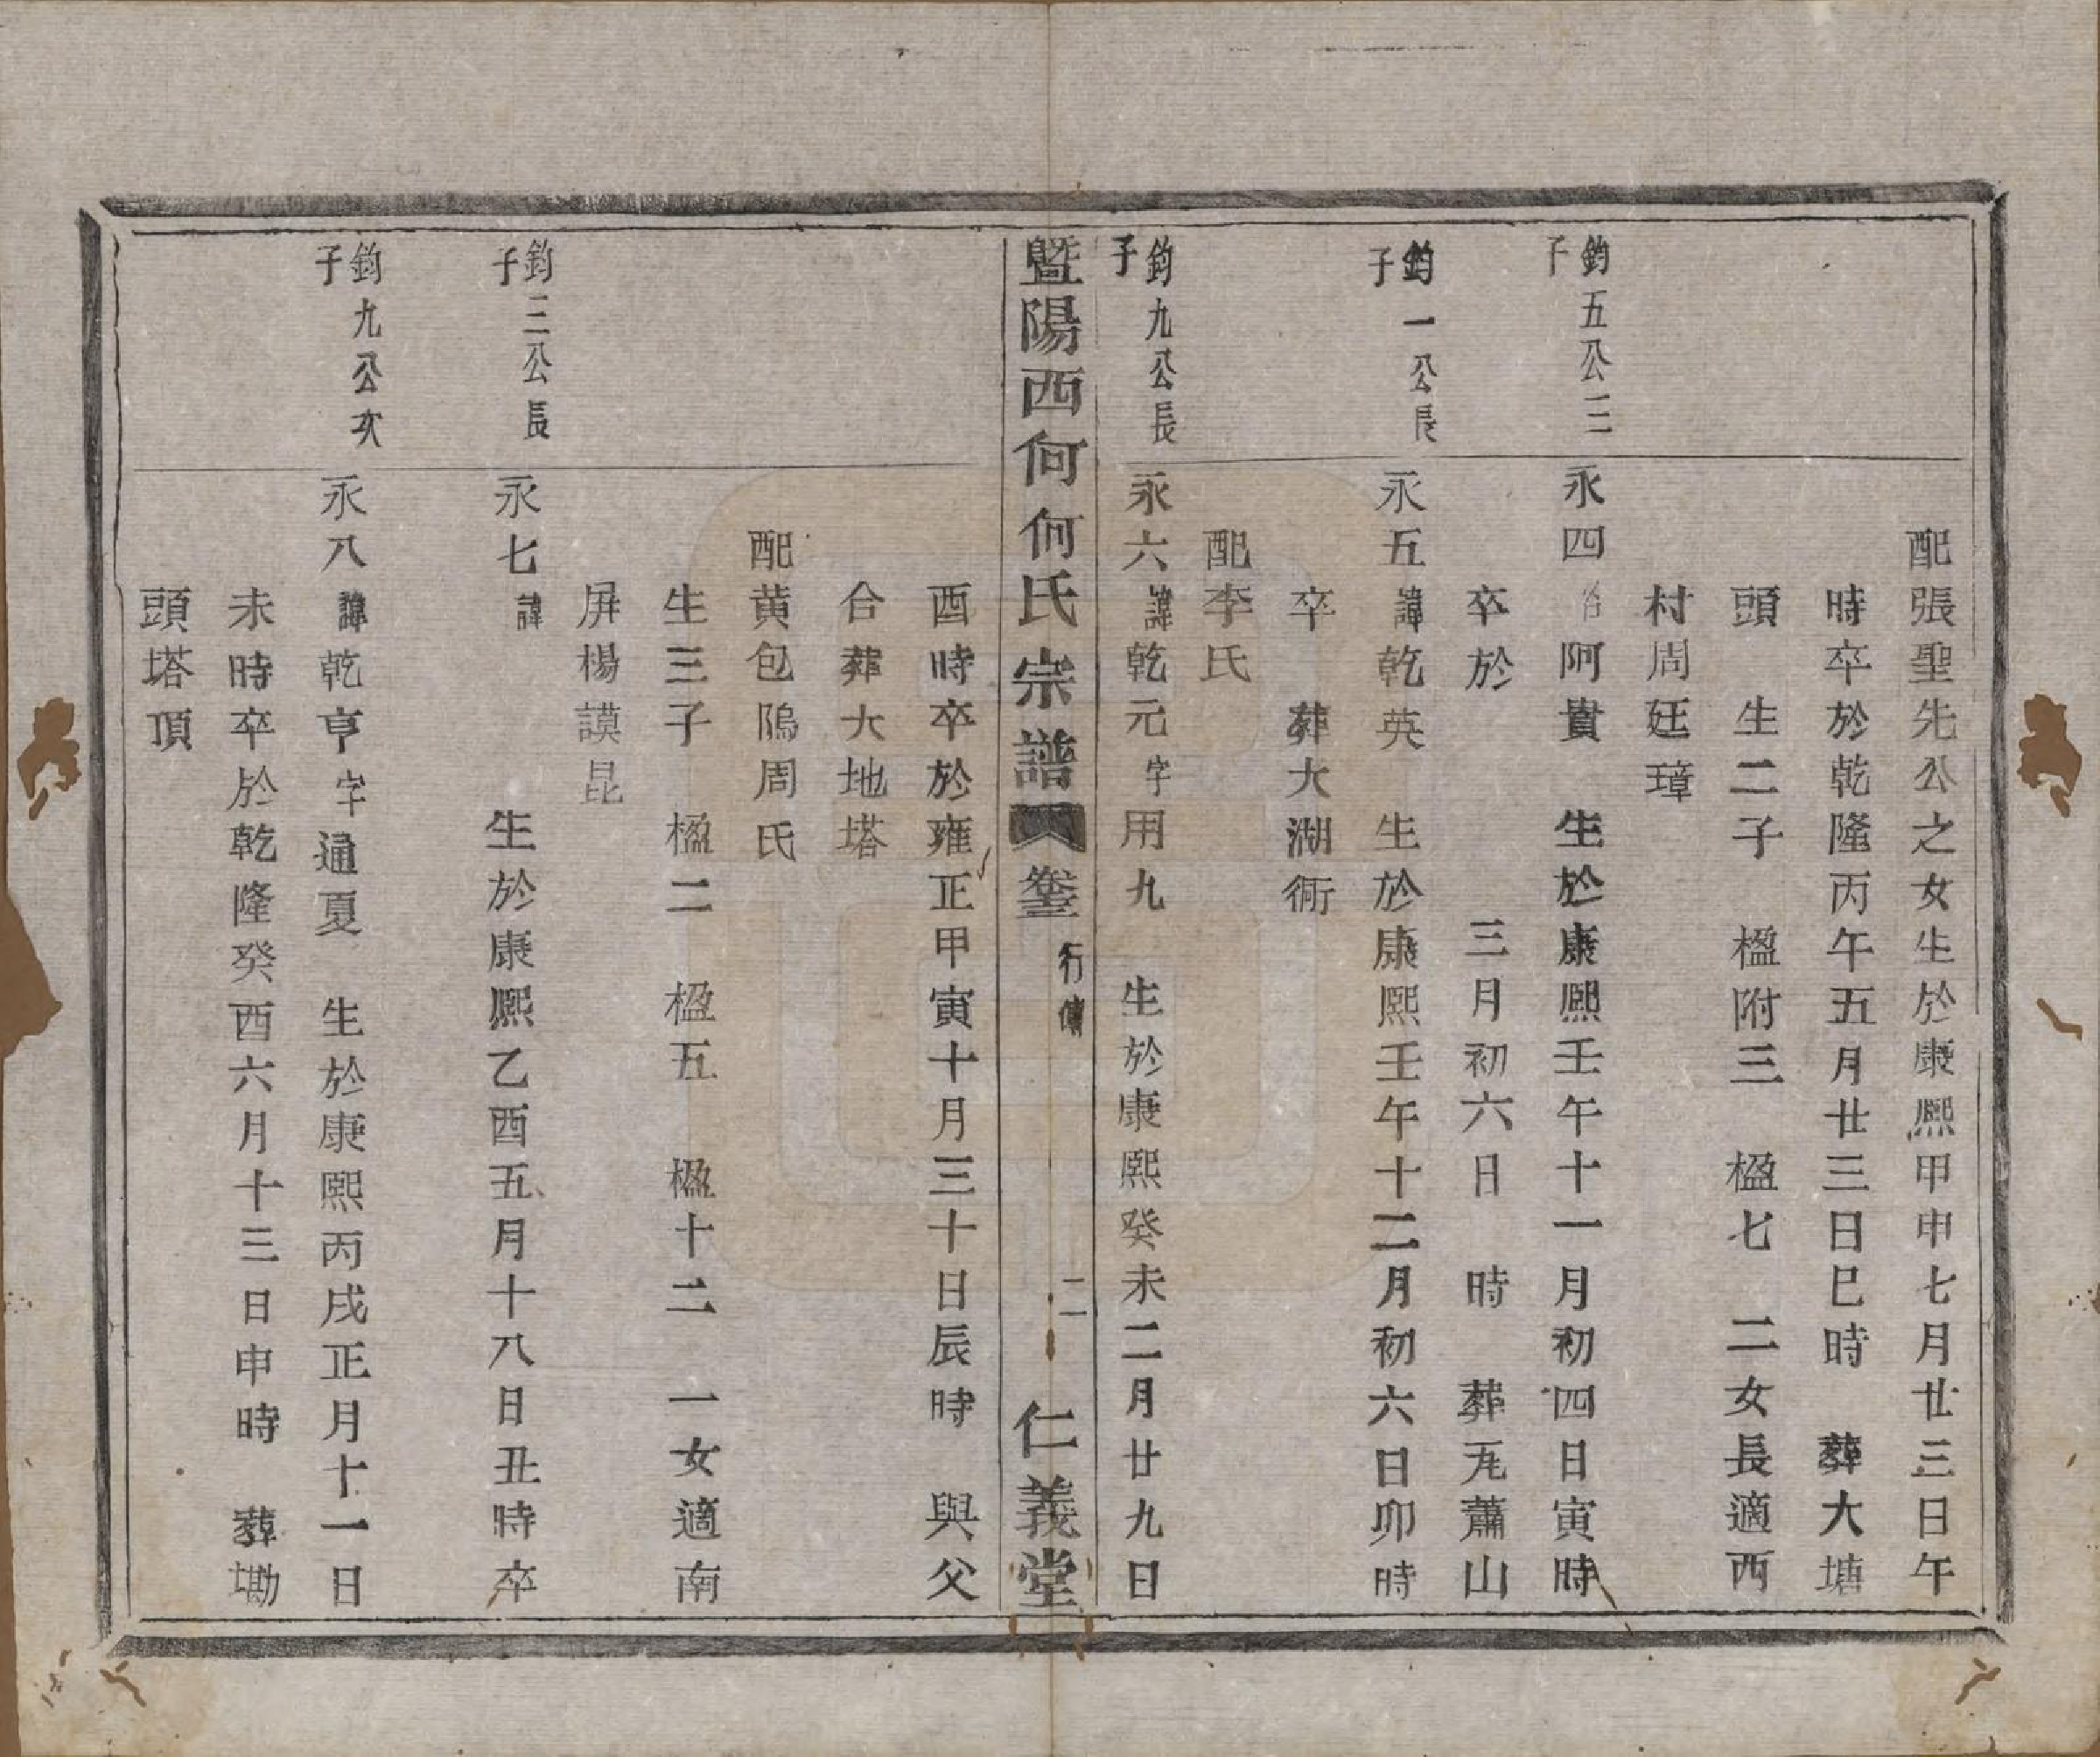 配張聖先公之女生於康熙甲申七月廿三日午
時卒於乾隆丙午五月廿三日巳時 葬大塘
頭 生二子 楹附三 楹七 二女長適西
村周廷璋
鈞五公三子
永四 阿貴 生於康熙壬午十一月初四日寅時
卒於 三月初六日 時 葬旡蕭山
鈞一公長子
永五 諱乾英 生於康熙壬午十二月初六日卯時
卒 葬大湖衕
配李氏
鈞九公長子
永六 諱乾元 字用九 生於康熙癸未二月廿九日
暨陽西何何氏宗譜 卷三 行傳 二 仁義堂
酉時卒於雍正甲寅十月三十日辰時 與父
合葬大地塔
配黄包隝周氏
生三子 楹二 楹五 楹十二 一女適南
屏楊謨昆
鈞三公長子
永七 諱 生於康熙乙酉五月十八日丑時卒
鈞九公次子
永八 諱乾亨 字通夏 生於康熙丙戌正月十一日
未時卒於乾隆癸酉六月十三日申時 葬墈
頭塔頂